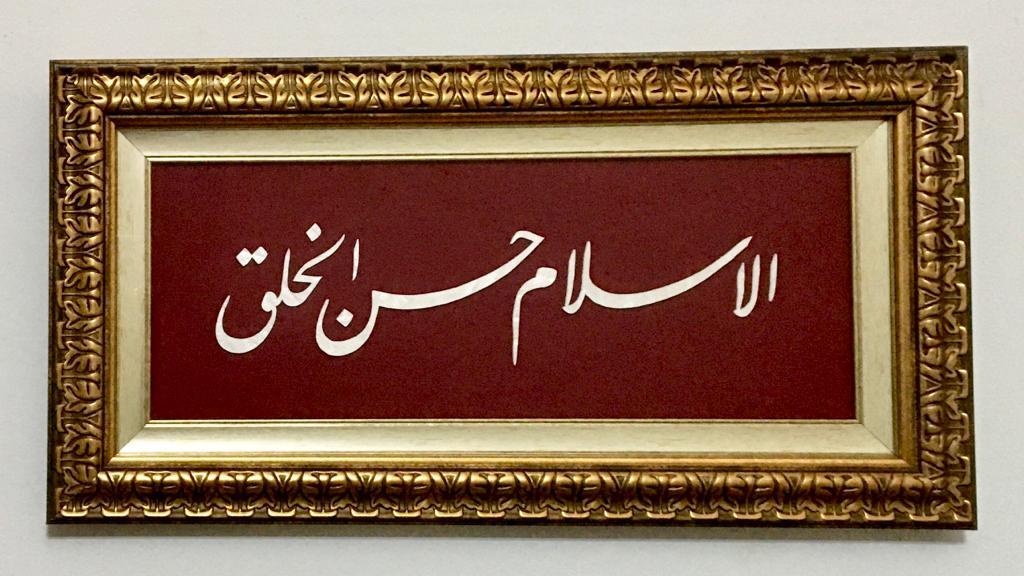 الاسلام حسن الخلق